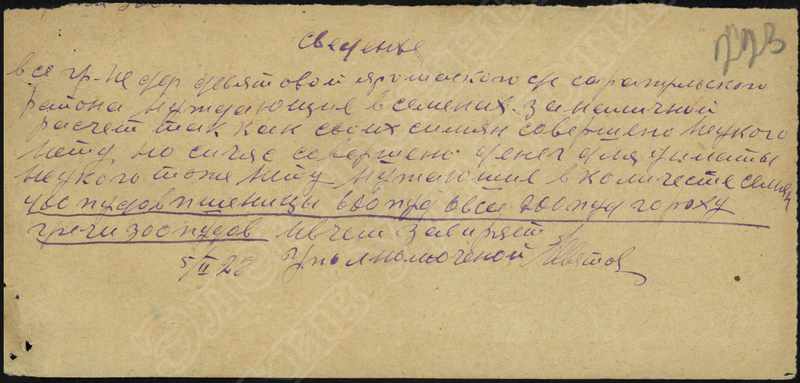 223
сведение
все гр-не дер девятовой ярошаского с/с сарапульского
района нуждающия в семенах за наличной
расчет так как своих симян совершено неукого
нету но сичяс совершено денег для уплаты
неукого тоже нету нужаюшие в количестве семян
400 пудов пшеницы 600 пуд овса 200 пуд гороху
гречи 300 пудов в чем завиряет
5/II 28 Уполномоченой